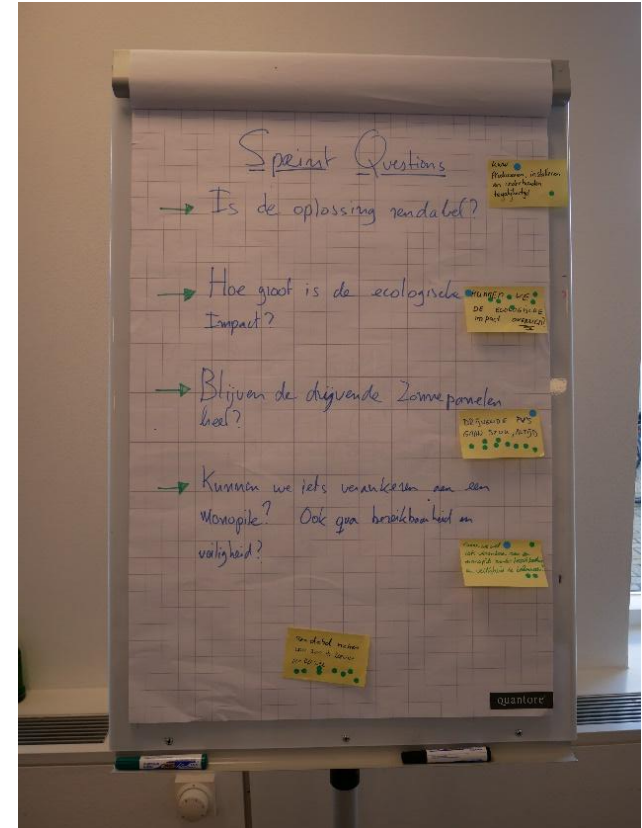 Sprint Questions
→ Is de oplossing rendabel?
→ Hoe groot is de ecologische
Impact?
→ Blijven de drijvende Zonnepanelen
heel?
→ Kunnen we iets verankeren aan een
monopile? Ook qua bereikbaarheid en
veiligheid?
Produceren, installeren
en onderhouden
KUNNEN WE
DE ECOLOGISCHE
impact
DRIJVENDE PV'S
GAAN STUK, ALTIJD
Rendabel maken
quantore